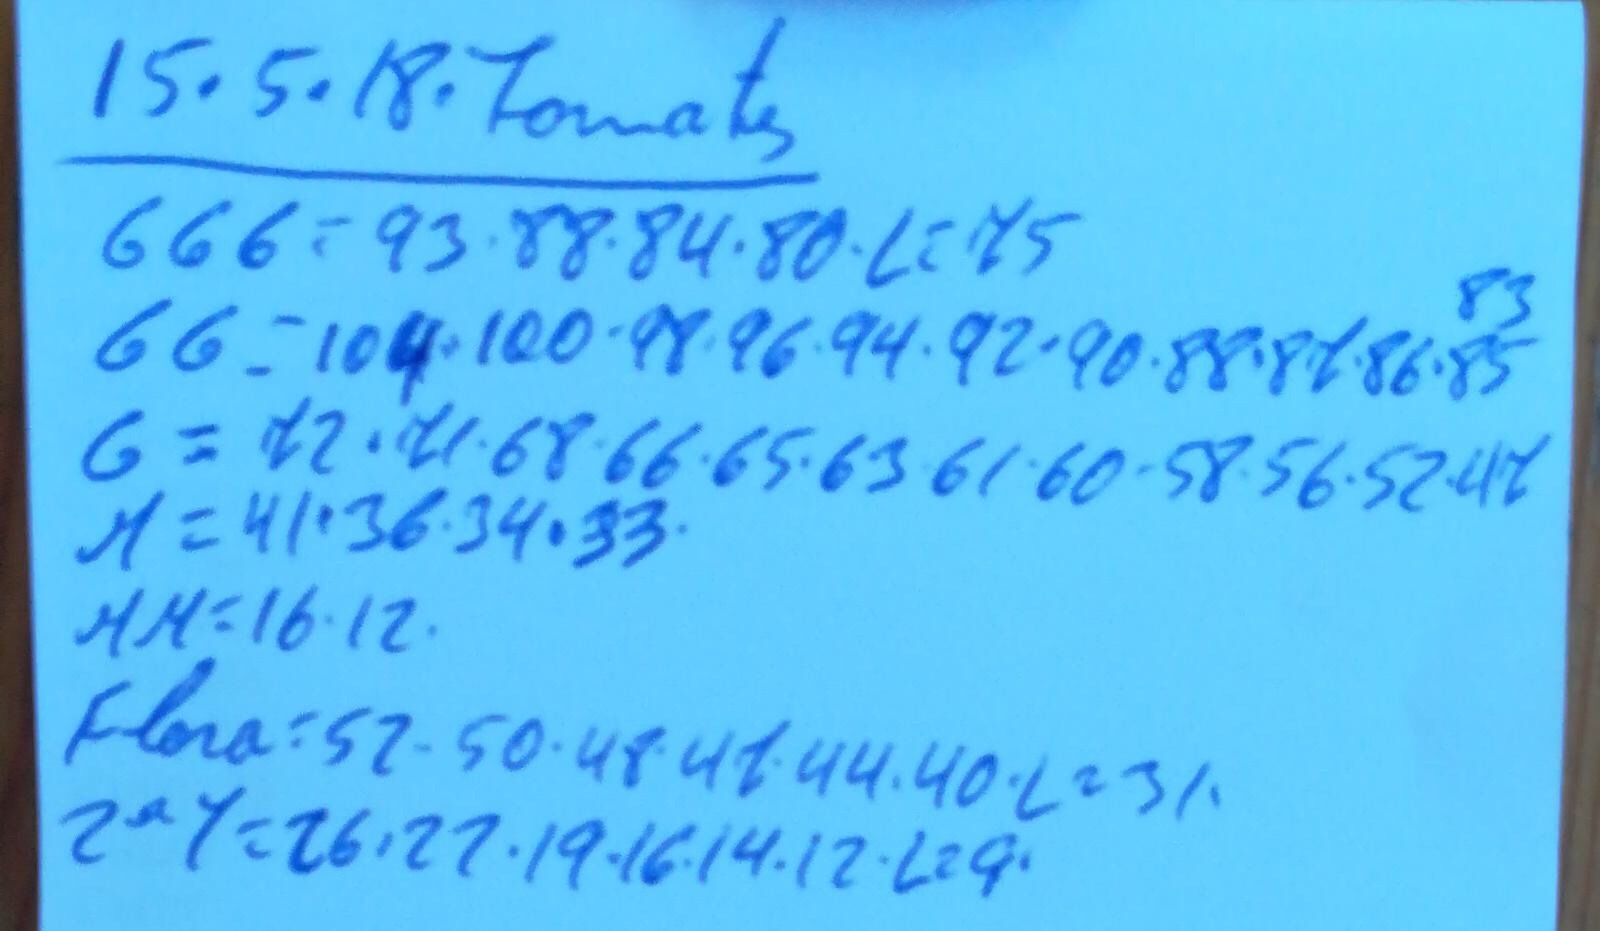 15.5.18.Tomates
GGG=93.88.84.80.L=75
83
GG=104.100.98.96.94.92.90.88.87.86.85
G=72.71.68.66.65.63.61.60.58.56.52.47
M=41.36.34.33.
MM=16.12.
Flora=52.50.48.47.44.40.L=31.
2ªY=26.22.19.16.14.12.L=9.